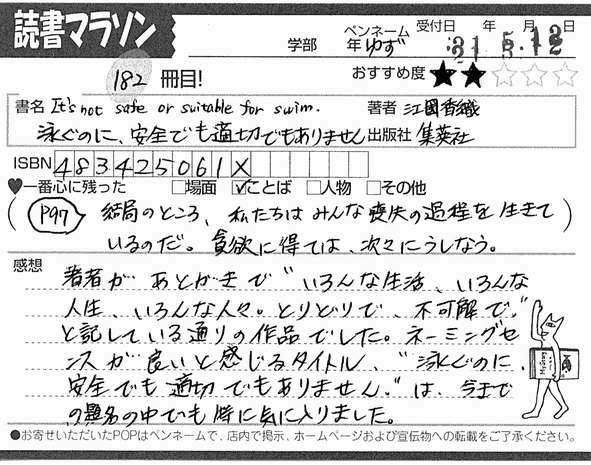 読書マラソン
学部 年 ペンネーム ゆず 受付日 年 月 日
31 5.12
182 冊目! おすすめ度 ★★☆☆☆
書名 It's not safe or suitable for swim. 著者 江國香織
泳ぐのに、安全でも適切でもありません 出版社 集英社
ISBN 483425061X
♥一番心に残った □場面 ☑ことば □人物 □その他
(P97 結局のところ、私たちはみんな喪失の過程を生きて
いるのだ。貪欲に得ては、次々にうしなう。)
感想
著者が あとがきで“いろんな生活、いろんな
人生、いろんな人々。とりどりで、不可解で。”
と記している通りの作品でした。ネーミングセ
ンスが良いと感じるタイトル、“泳ぐのに、
安全でも適切でもありません。”は、今まで
の題名の中でも特に気に入りました。
●お寄せいただいたPOPはペンネームで、店内で掲示、ホームページおよび宣伝物への転載をご了承ください。